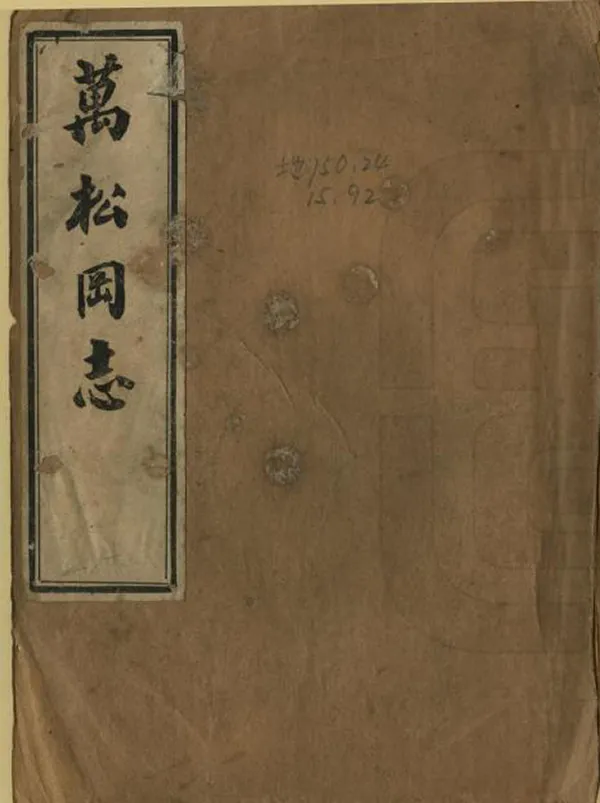 萬松岡志
地150.24
15.92